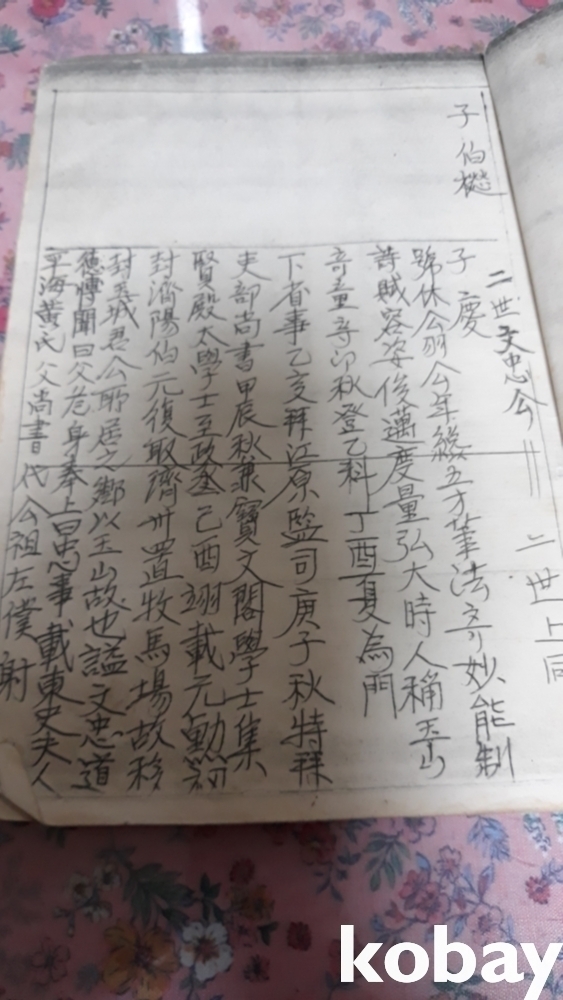 二世 文忠公 二世上同
子伯
子慶
號休公羽公年纔五才筆法奇妙能制
詩賦容姿俊邁度量弘大時人稱玉山
奇童辛卯秋登乙科丁酉夏為門
下省事乙亥拜江原監司庚子秋特拜
吏部尚書甲辰秋兼寶文閣學士集
賢殿太學士至政堂己酉翊載元勳
封濟陽伯元復取濟州置牧馬場故移
封玉城君公所居之鄉以玉山故也諡文忠道
德博聞曰文危身奉上曰忠事載東史夫人
平海黃氏父尚書代公祖左僕射
kobay